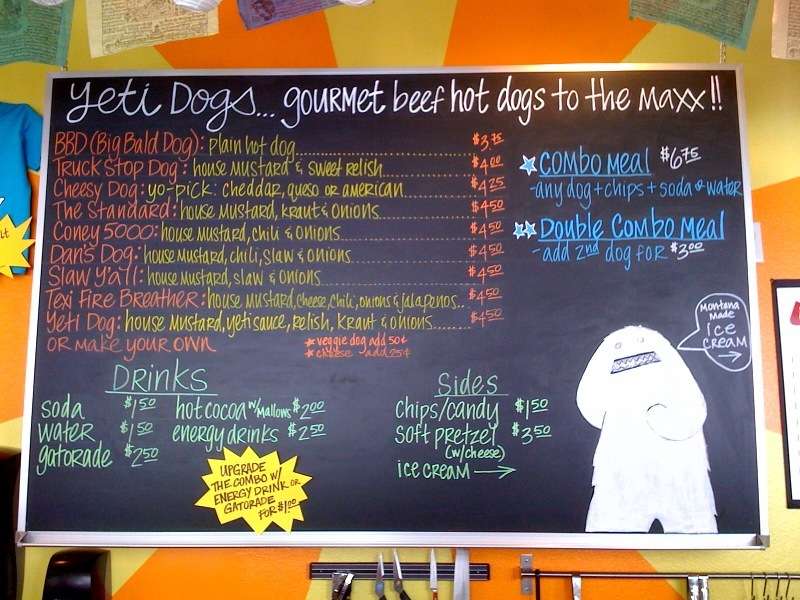 Yeti Dogs... gourmet beef hot dogs to the Maxx!!
BBD (Big Bald Dog): plain hot dog $3.75
Truck Stop Dog: house mustard & sweet relish $4.00
Cheesy Dog: yo-pick: cheddar, queso or american $4.25
The Standard: house mustard, kraut & onions $4.50
Coney 5000: house mustard, chili & onions $4.50
Dan's Dog: house mustard, chili, slaw & onions $4.50
Slaw Y'all: house mustard, slaw & onions $4.50
Texi Fire Breather: house mustard, cheese, chili, onions & jalapenos.. $4.50
Yeti Dog: house mustard, yeti sauce, relish, kraut & onions $4.50
or make your own
★ veggie dog add 50¢
★ cheese add 25¢
★ Combo Meal $6.75
- any dog + chips + soda or water
★★ Double Combo Meal
- add 2nd dog for $3.00
Montana
Made
ice
cream
→
Drinks
soda $1.50 hot cocoa w/mallows $2.00
water $1.50 energy drinks $2.50
gatorade $2.50
Upgrade
the combo w/
energy drink or
gatorade
for $1.00
Sides
chips/candy $1.50
soft pretzel $3.50
(w/cheese)
ice cream →